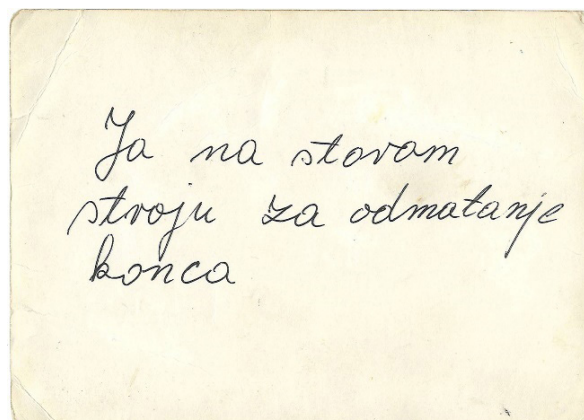 Ja na starom
stroju za odmatanje
konca